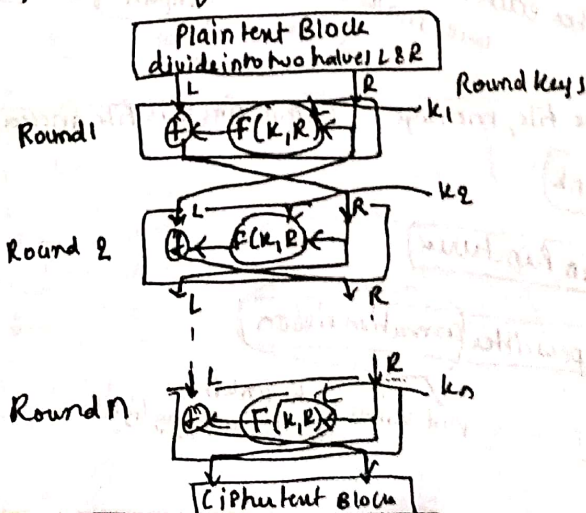 Plaintext Block
divide into two halves L & R
L R
Round Keys
Round 1 + F(K,R) K1
K2
L R
Round 2 + F(K,R)
L R
R
L
Kn
Round n + F(K,R)
Ciphertext Block